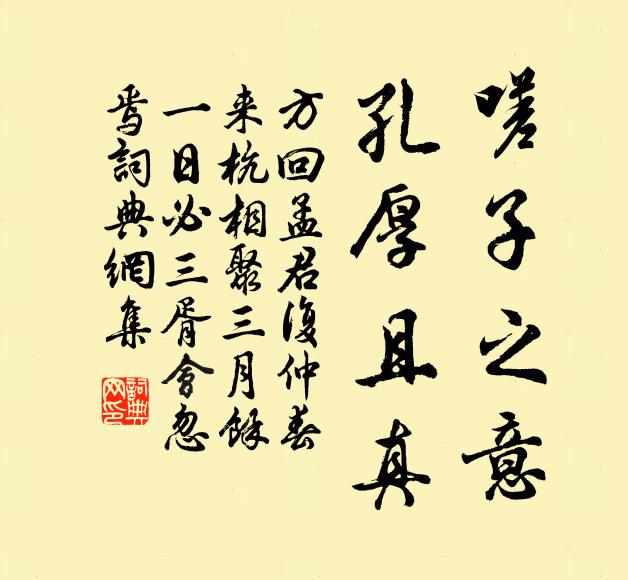 嗟子之意
孔厚且真
方回孟君復仲春
来杭相聚三月餘
一日必三胥會忽
焉詞典網集
詞典
网印